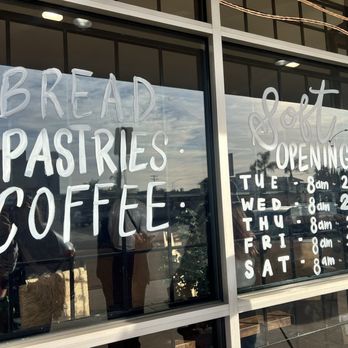 BREAD
PASTRIES.
COFFEE.
Soft
OPENING
TUE - 8am - 2
WED - 8am - 2
THU - 8am -
FRI - 8am -
SAT - 8am